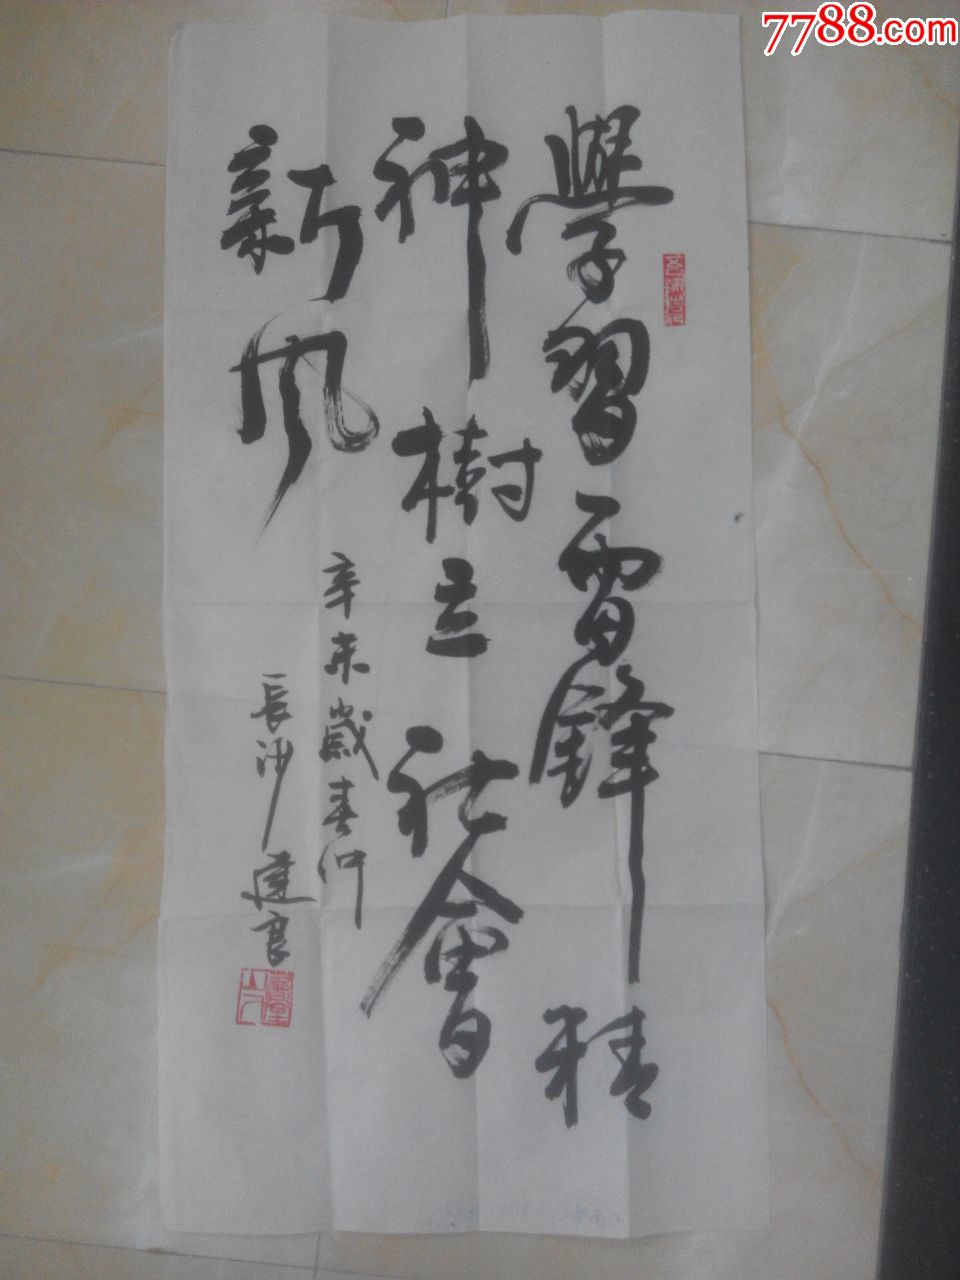 7788.com
學習雷鋒精
神樹立社會
新風
辛未歲春仲
長沙建良